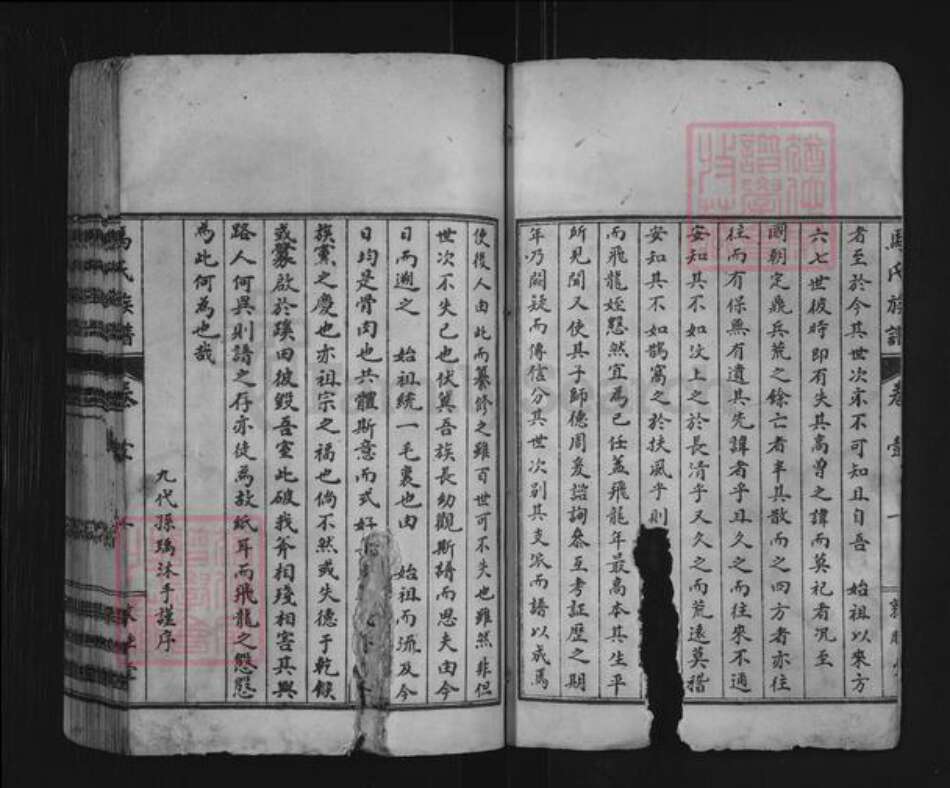 馬氏族譜 卷 壹 一
者至於今其世次亦不可知且自吾 始祖以來方
六七世彼時即有失其高曾之諱而莫祀者况至
國朝定鼎兵荒之餘亡者半其散而之四方者亦往
往而有保無有遺其先諱者乎且久之而往來不通
安知其不如汶上之於長清乎又久之而荒遠莫稽
安知其不如鵲窩之於扶風乎則
而飛龍姪慇然宜為已任盖飛龍年最高本其生平
所見聞又使其子師德周爰諮詢叅互考証歷之期
年乃闕疑而傳信分其世次别其支派而譜以成焉
使後人由此而纂修之雖百世可不失也雖然非但
世次不失已也伏冀吾族長幼觀斯譜而思夫由今
日而遡之 始祖統一毛裏也由 始祖而流及今
日均是骨肉也共體斯意而式好
族黨之慶也亦祖宗之福也倘不然或失德于乾餱
或釁啟於蹊田彼毀吾室此破我斧相殘相害其與
路人何異則譜之存亦徒為故紙耳而飛龍之慇慇
為此何為也哉
九代孫瑀沐手謹序
馬氏族譜 卷